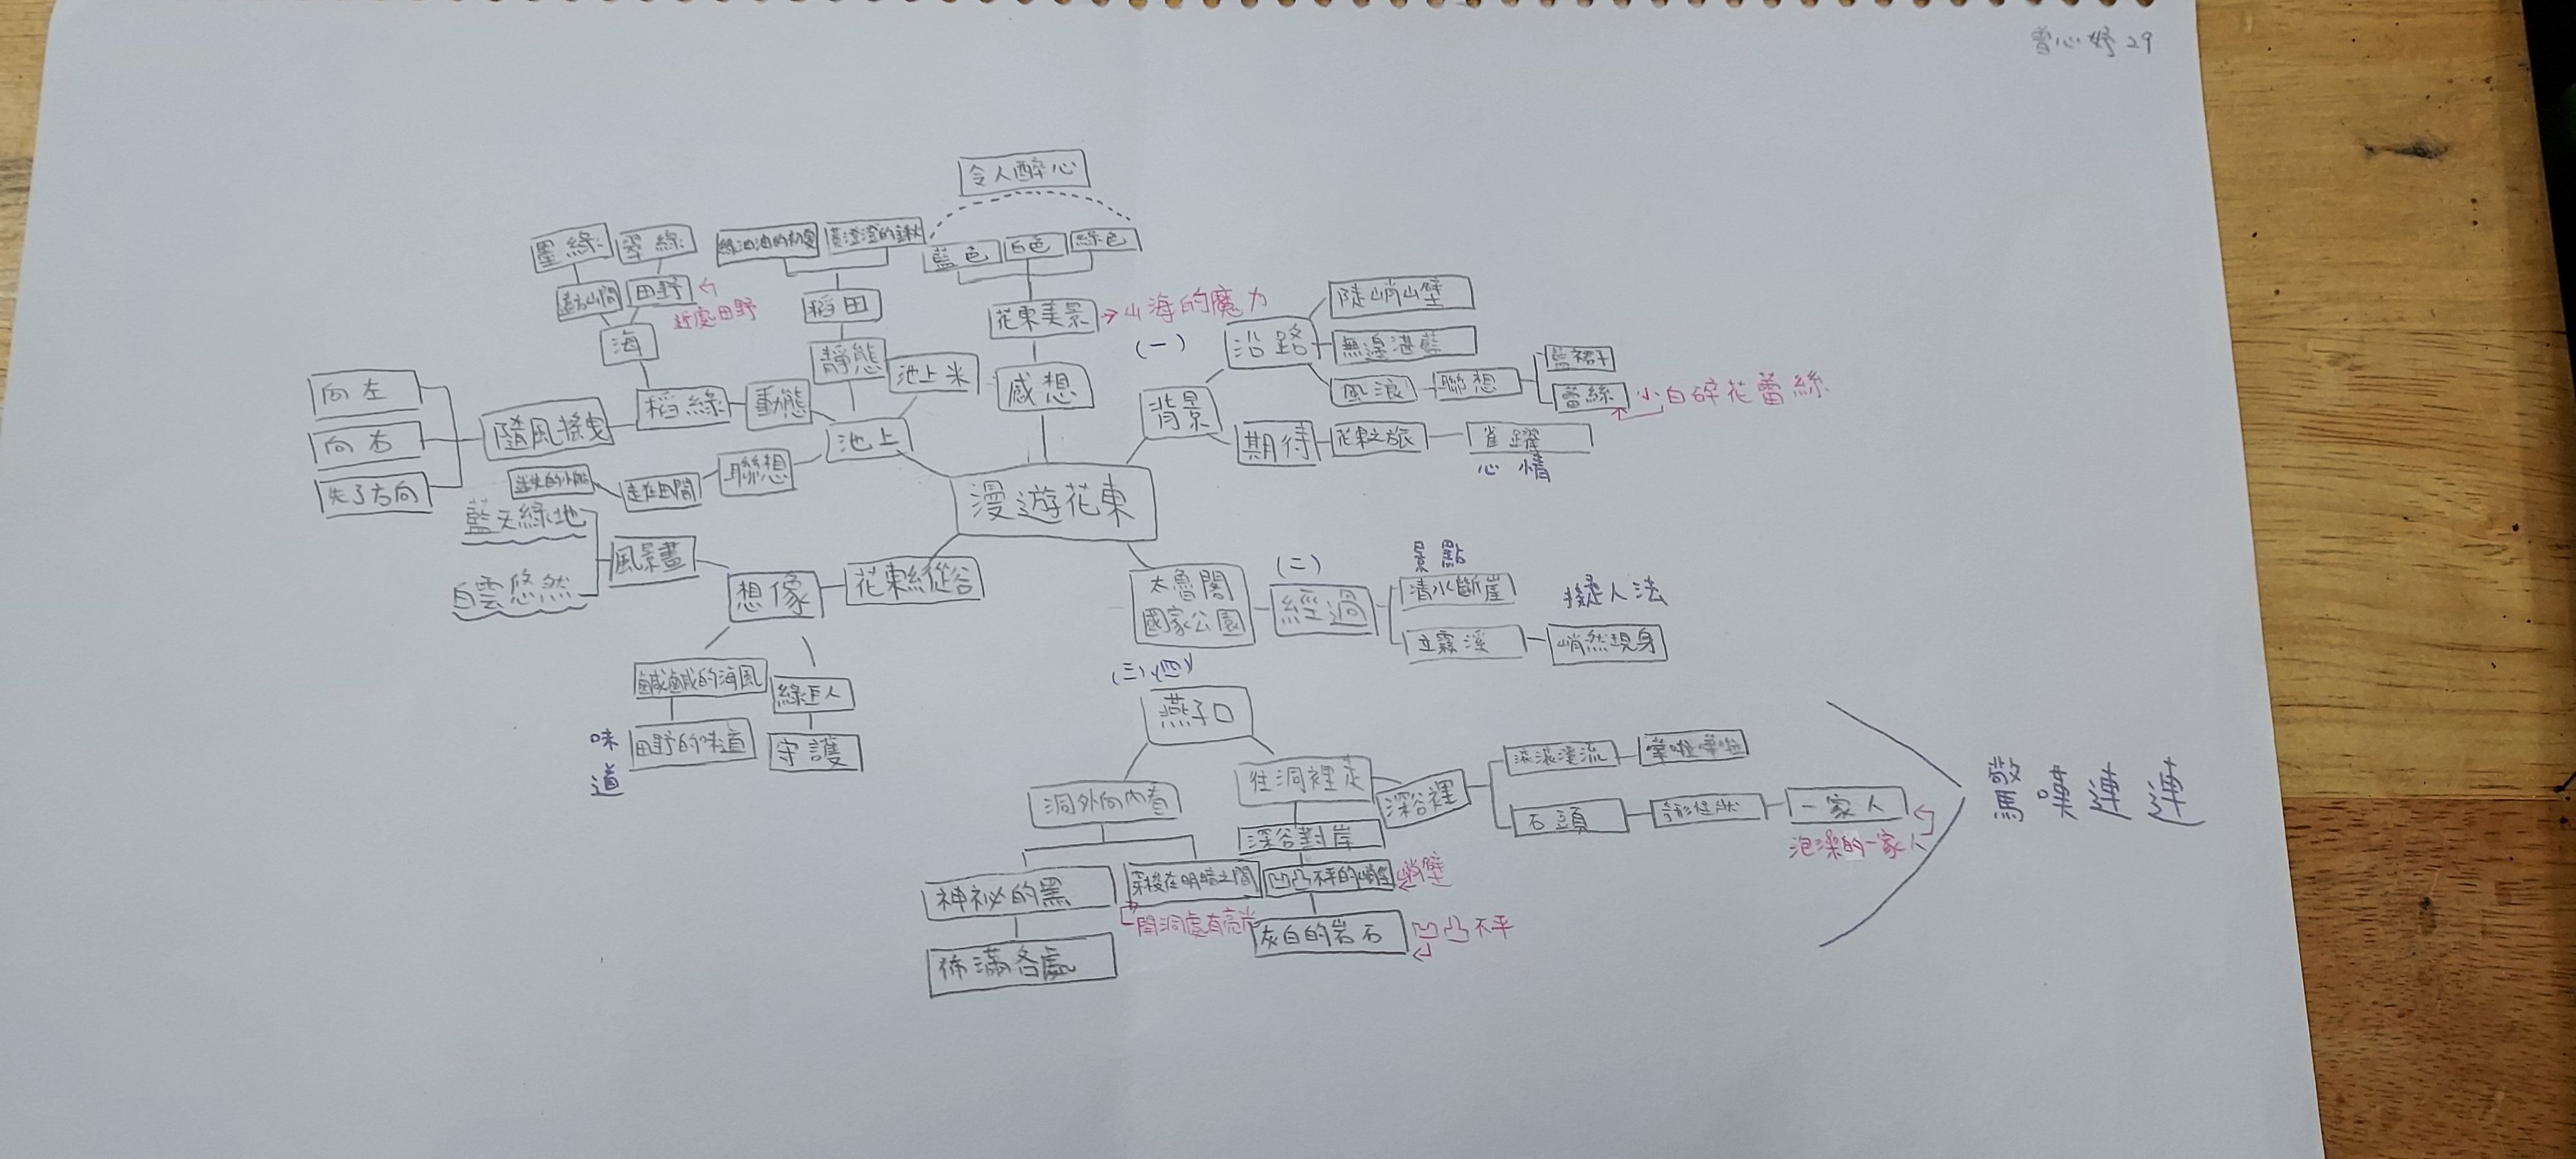 心妤 29
令人醉心
藍色
白色
綠色
花東美景
山海的魔力
感想
漫遊花東
(一)
背景
沿路
陡峭山壁
無邊湛藍
風浪
聯想
藍裙子
蕾絲
小白碎花蕾絲
期待
花東之旅
雀躍
心情
太魯閣
國家公園
(二)
經過
景點
清水斷崖
立霧溪
擬人法
峭然現身
(三)、(四)
燕子口
洞外向內看
神祕的黑
佈滿各處
穿梭在明暗之間
開洞處有亮光
往洞裡走
深谷對岸
凹凸不平的峭壁
峭壁
灰白的岩石
凹凸不平
深谷裡
滾滾溪流
嘩啦嘩啦
石頭
奇形怪狀
一家人
泡澡的一家人
驚嘆連連
花東縱谷
想像
風景畫
藍天綠地
白雲悠然
鹹鹹的海風
田野的味道
味道
綠巨人
守護
池上
池上米
靜態
稻田
綠油油的初夏
黃澄澄的
動態
稻綠
海
遠方山間
墨綠
田野
翠綠
近處田野
隨風搖曳
向左
向右
失了方向
聯想
走在田間
迷失的小船